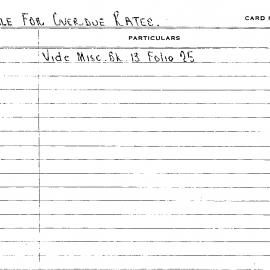 LE FOR OVERDUE RATES.
CARD
PARTICULARS
Vide Misc. Bk. 13 Folio 25